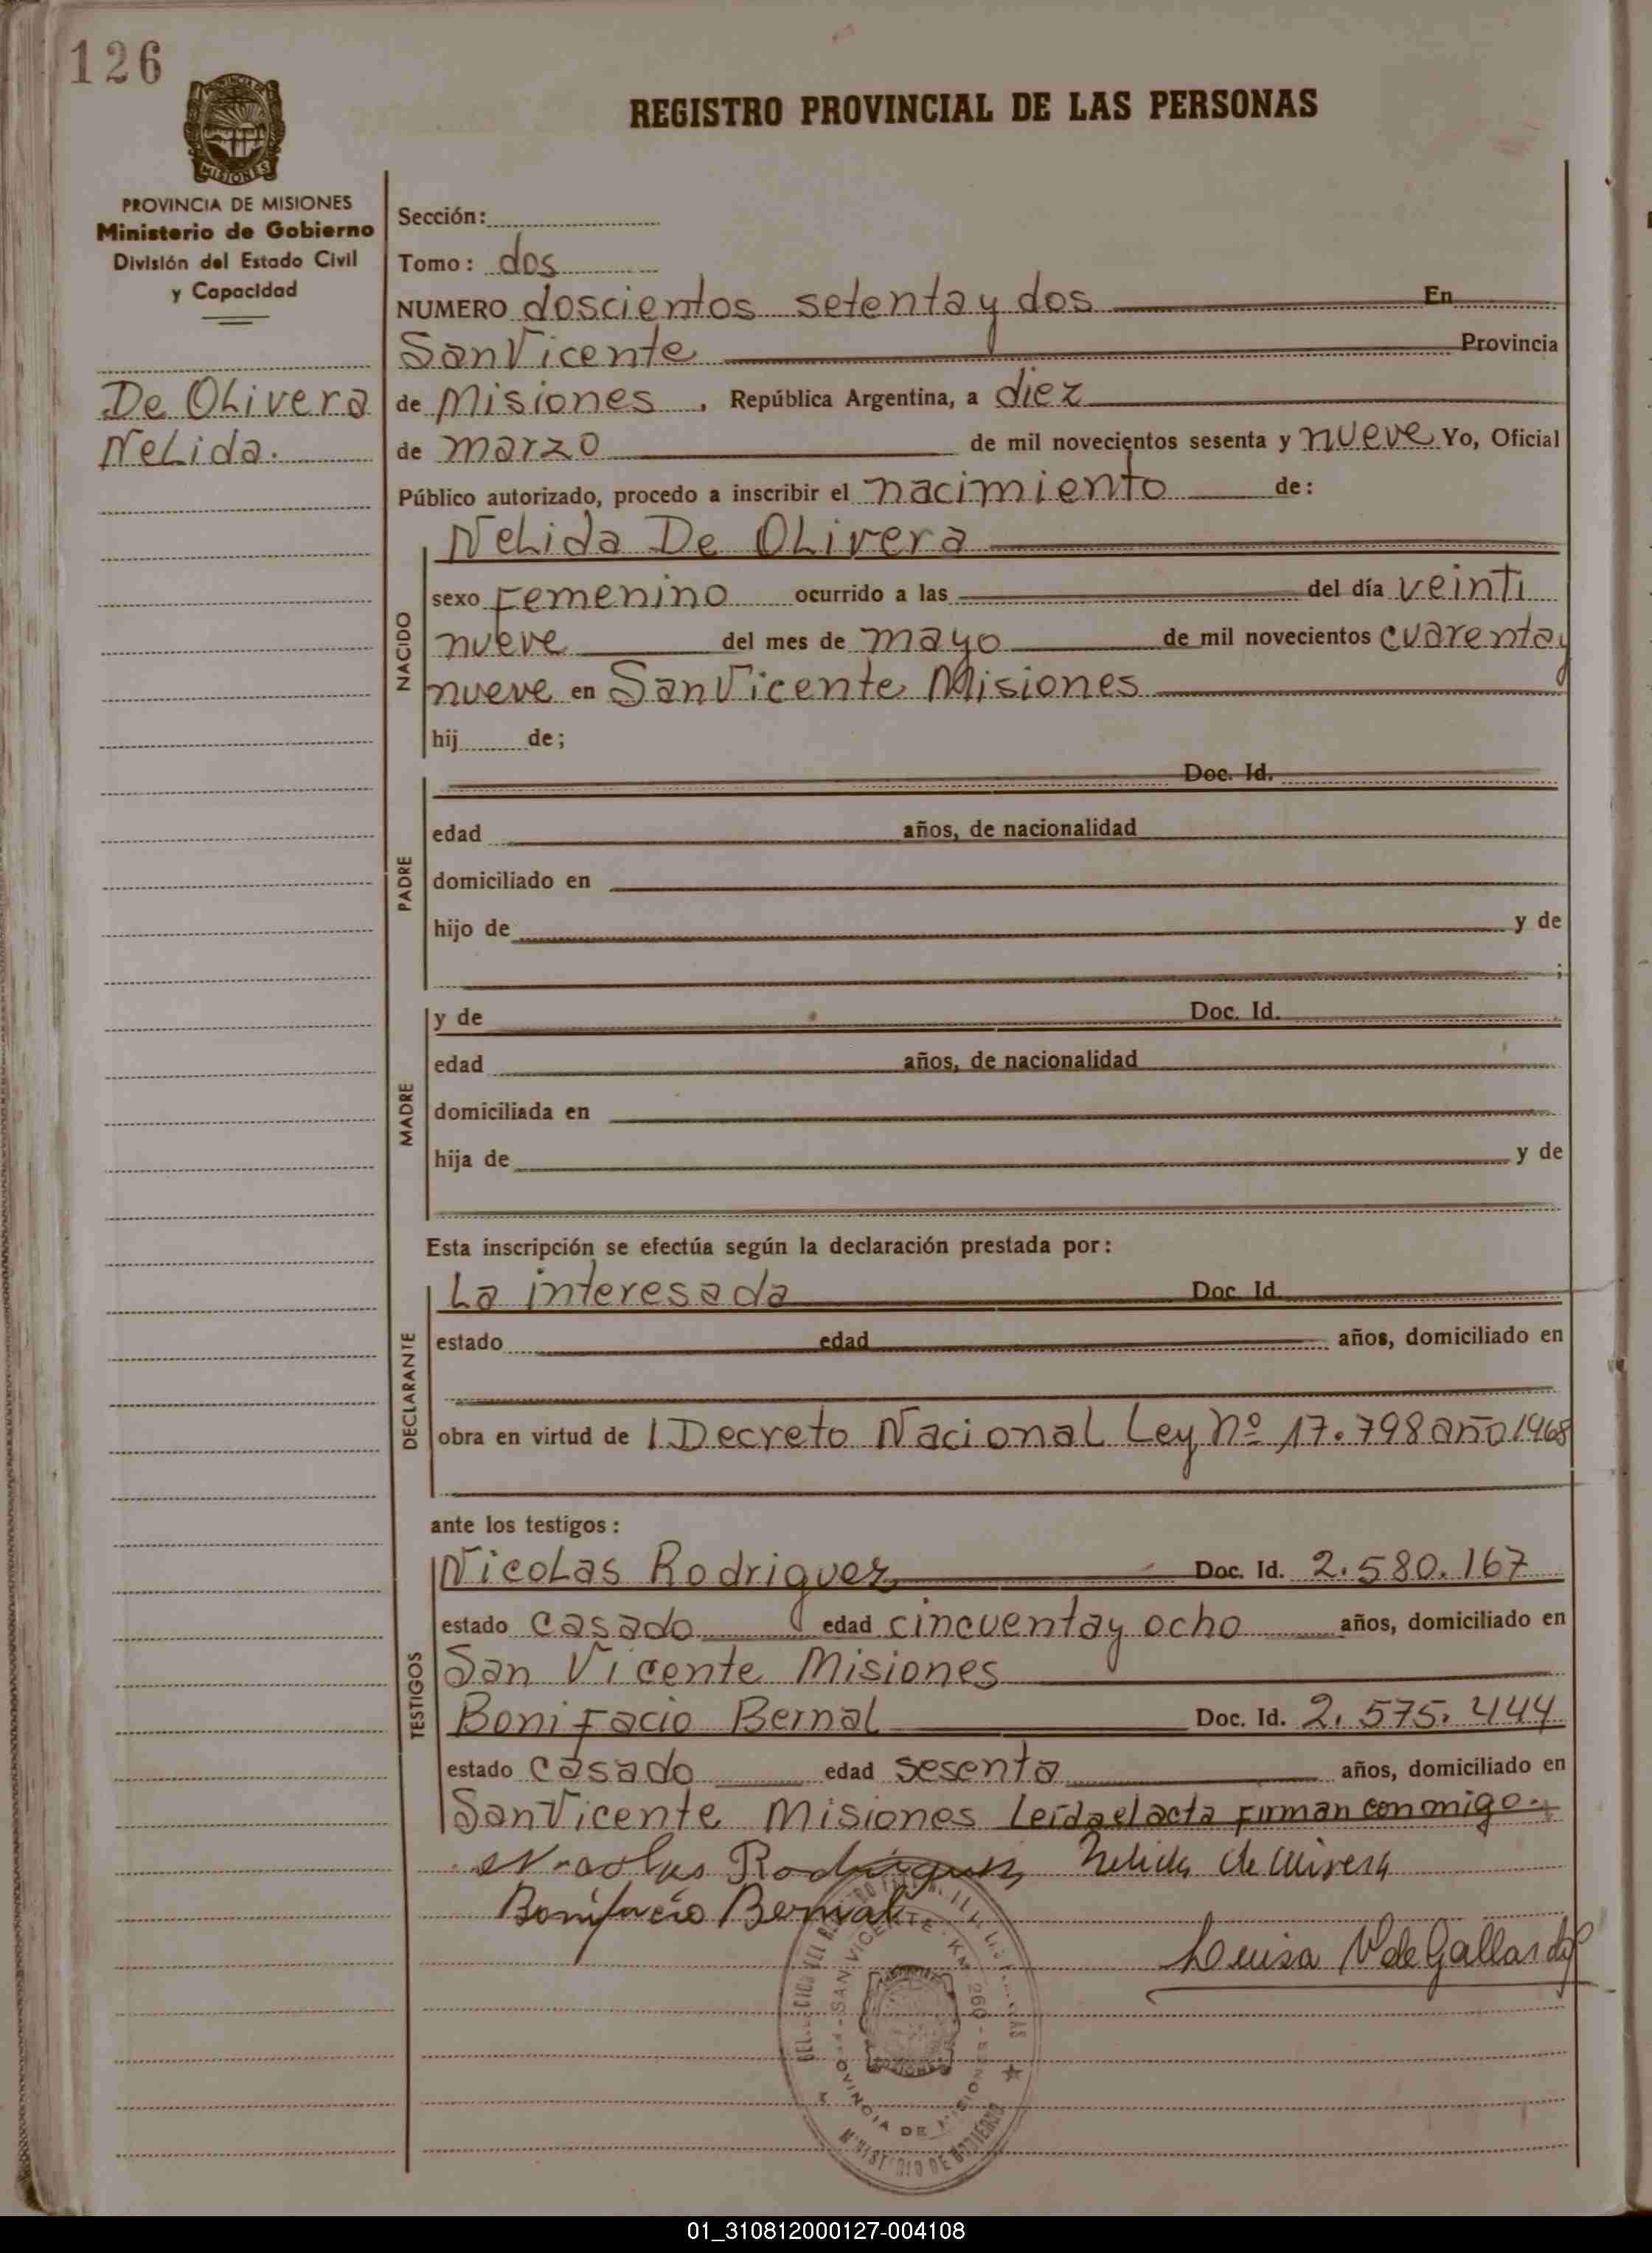 126
REGISTRO PROVINCIAL DE LAS PERSONAS
MISIONES
PROVINCIA DE MISIONES
Ministerio de Gobierno
División del Estado Civil
y Capacidad
De Olivera
Nelida.
Sección:
Tomo: dos
NUMERO doscientos setenta y dos En
San Vicente Provincia
de Misiones, República Argentina, a diez
de marzo de mil novecientos sesenta y nueve Yo, Oficial
Público autorizado, procedo a inscribir el nacimiento de:
Nelida De Olivera
NACIDO
sexo Femenino ocurrido a las del día veinti
nueve del mes de mayo de mil novecientos cuarenta y
nueve en San Vicente Misiones
hij de;
PADRE
Doc. Id.
edad años, de nacionalidad
domiciliado en
hijo de y de
;
MADRE
y de Doc. Id.
edad años, de nacionalidad
domiciliada en
hija de y de
Esta inscripción se efectúa según la declaración prestada por:
DECLARANTE
La interesada Doc. Id
estado edad años, domiciliado en
obra en virtud de l Decreto Nacional Ley Nº 17.798 año 1968
ante los testigos:
TESTIGOS
Nicolas Rodriguez Doc. Id. 2.580.167
estado casado edad cincuenta y ocho años, domiciliado en
San Vicente Misiones
Bonifacio Bernal Doc. Id. 2.575.444
estado casado edad sesenta años, domiciliado en
San Vicente Misiones Leida el acta firman conmigo.
Nicolas Rodriguez Nelida de Olivera
Bonifacio Bernal
Luisa V de Gallardo
SAN VICENTE - KM 260
PROVINCIA DE MISIONES
MINISTERIO DE GOBIERNO
01_310812000127-004108